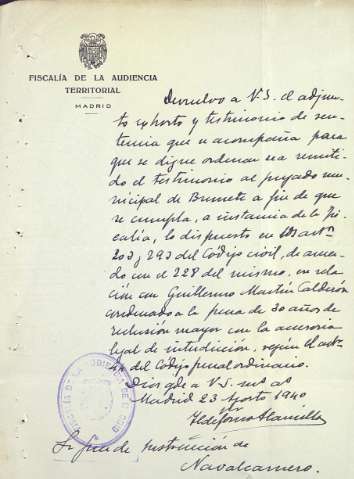 FISCALÍA DE LA AUDIENCIA
TERRITORIAL
MADRID
Devuelvo a V.S. el adjun-
to exhorto y testimonio de sen-
tencia que se acompaña para
que se digne ordenar sea remiti-
do el testimonio al juzgado mu-
nicipal de Brunete a fin de que
se cumpla, a instancia de la Fis-
calía, lo dispuesto en los artos
203 y 293 del Codigo civil, de acuer-
do con el 228 del mismo, en rela-
ción con Guillermo Martín Calderón
condenado a la pena de 30 años de
reclusión mayor con la accesoria
legal de interdicción, según el art
del Codigo penal ordinario.
Dios gde a V.S. ms as
Madrid 23 Agosto 1940
Ildefonso Alamillo
FISCALIA DE LA AUDIENCIA
Sr Juez de Instrucción de
Navalcarnero.